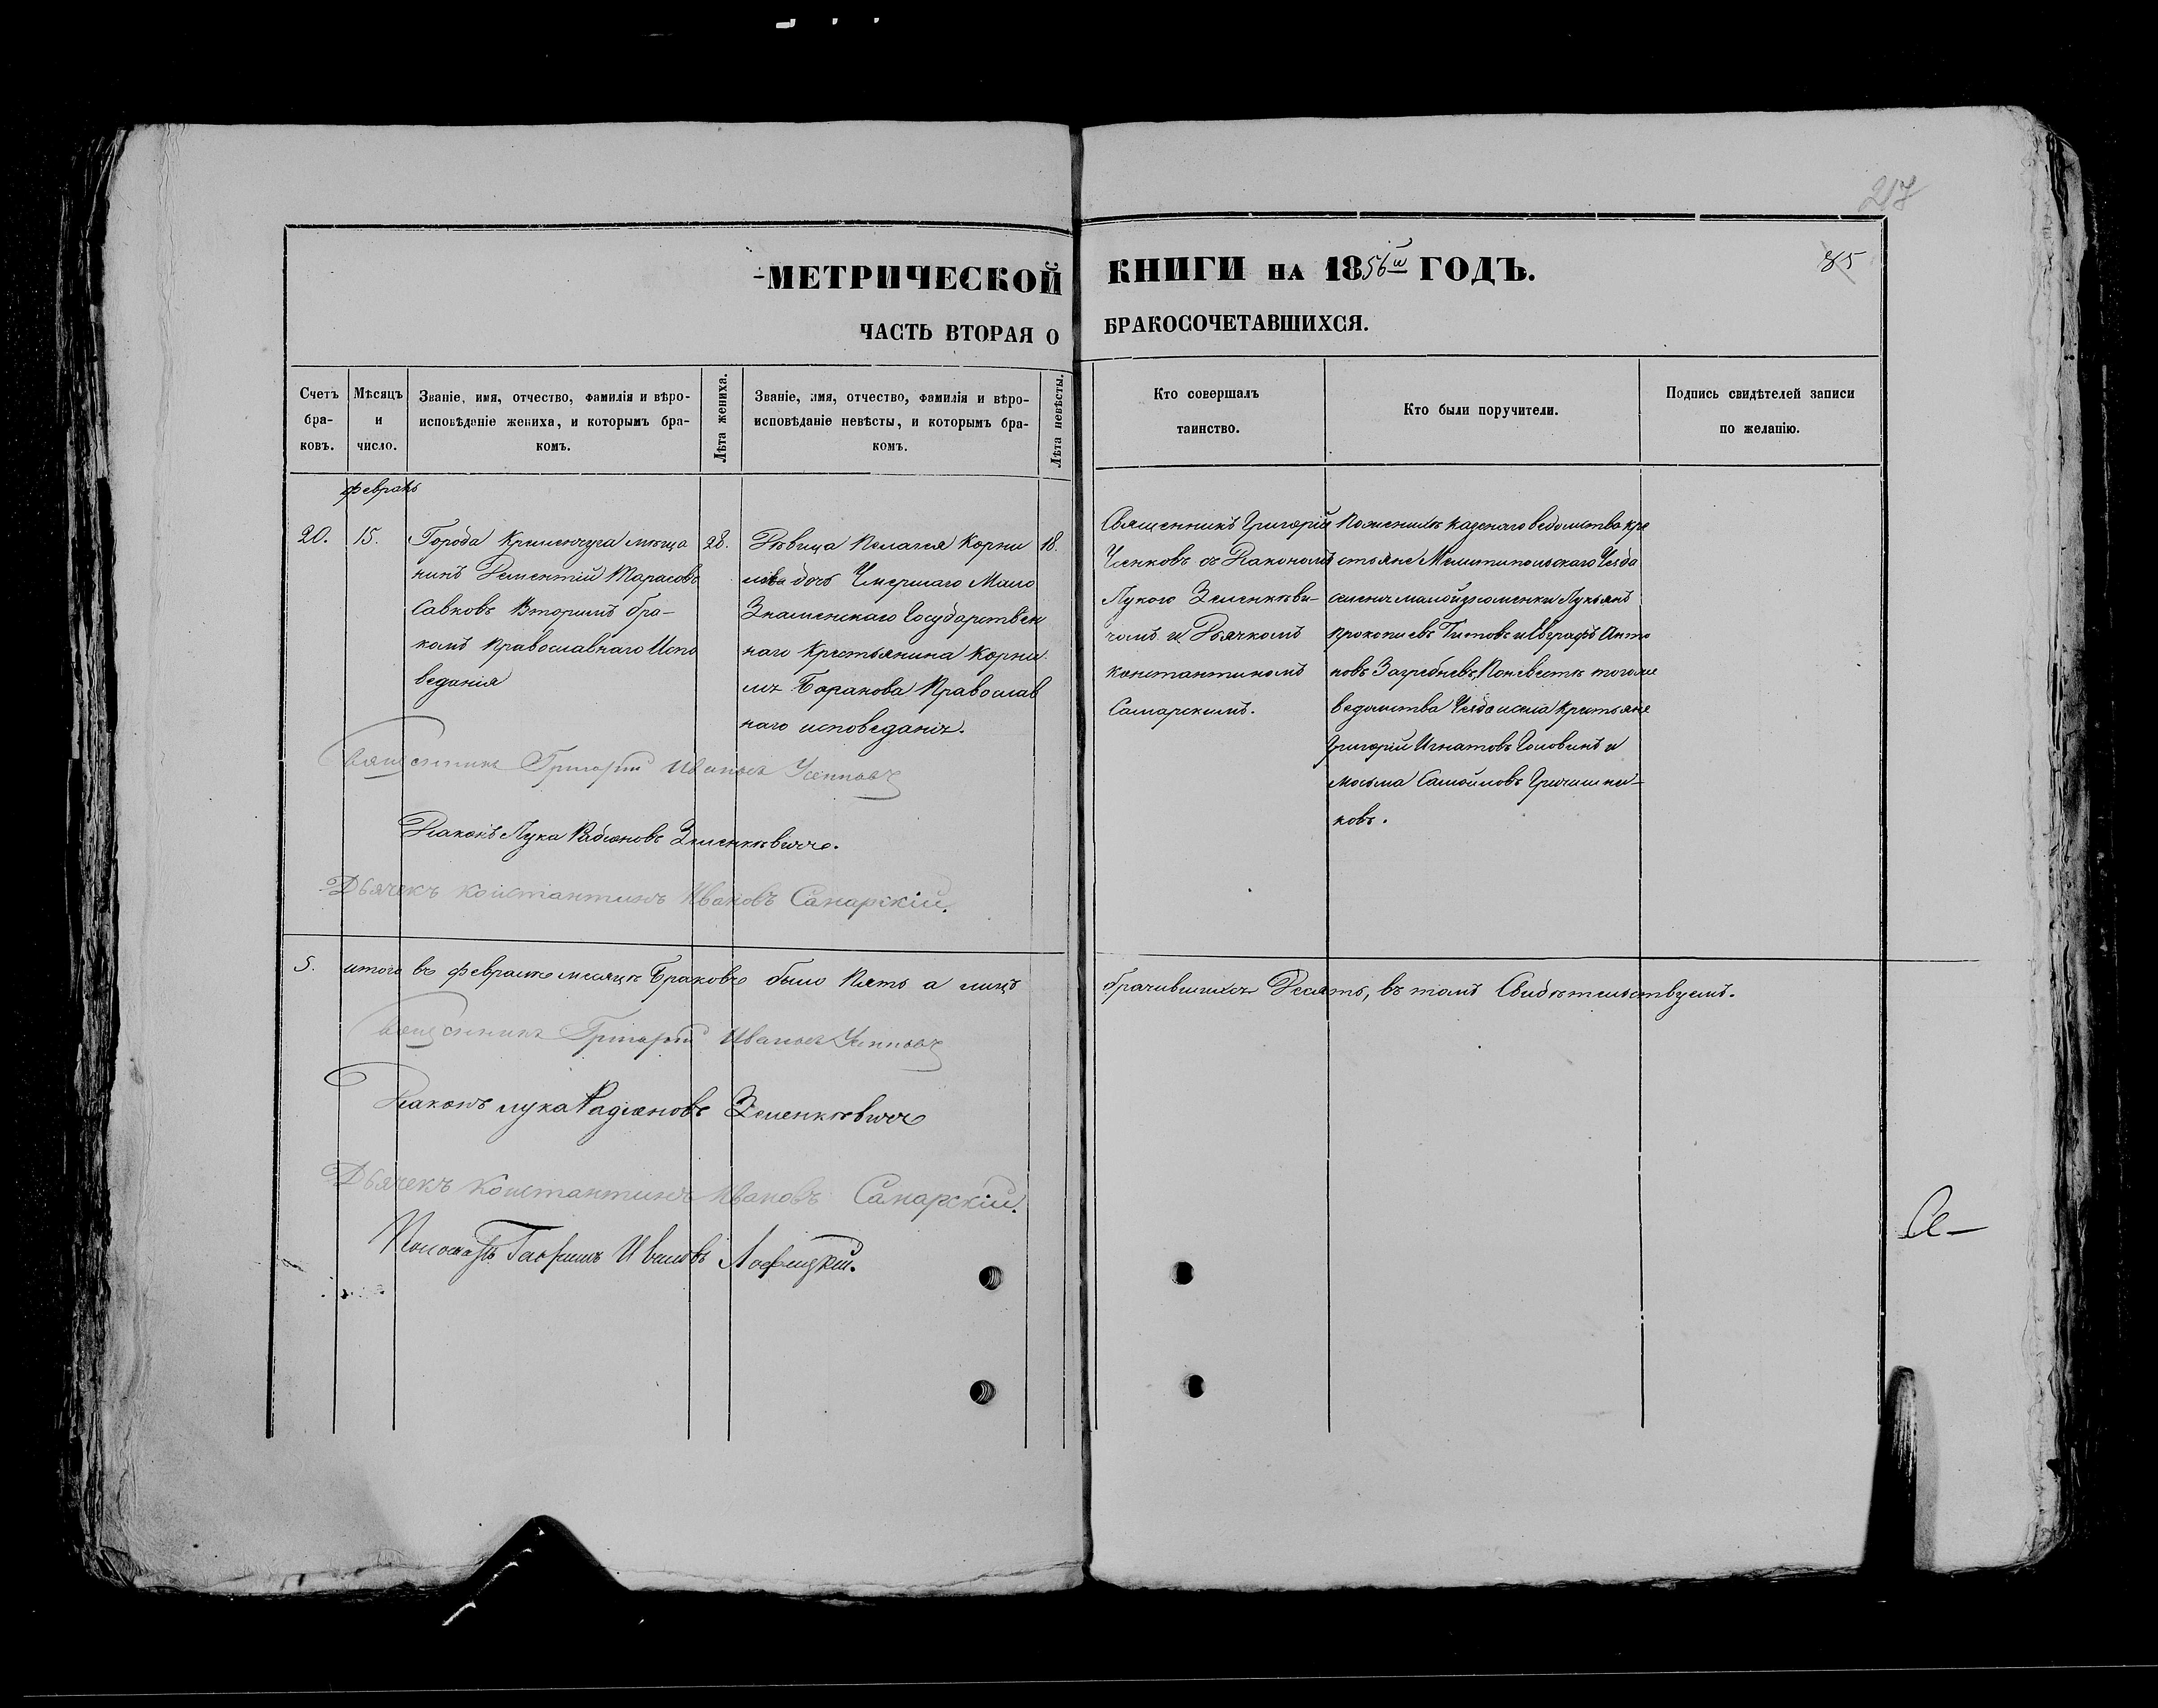 217
МЕТРИЧЕСКОЙ КНИГИ НА 1856й ГОДЪ.
85
ЧАСТЬ ВТОРАЯ О БРАКОСОЧЕТАВШИХСЯ.
Счетъ бра-ковъ.
Мѣсяцъ и число.
Званіе, имя, отчество, фамилія и вѣро-
исповѣданіе жениха, и которымъ бра-
комъ.
Лѣта жениха.
Званіе, имя, отчество, фамилія и вѣро-
исповѣданіе невѣсты, и которымъ бра-
комъ.
Лѣта невѣсты.
Кто совершалъ
таинство.
Кто были поручители.
Подпись свидѣтелей записи
по желанію.
февраль
20.
15.
Города Кременчуга мѣща
нинъ Дементій Тарасовъ
Савковъ Вторымъ бра-
комъ Православнаго Испо
веданія
28.
Дѣвица Пелагея Корни
лова дочь Умершаго Мало
Знаменскаго Государствен
наго Крестьянина Корни
лы Баранова Православ
наго исповеданія.
18.
Священникъ Григорій
Усенковъ съ Діакономъ
Лукою Зеленкѣви-
чемъ и Дьячкомъ
Константиномъ
Самарскимъ.
Поженихѣ казенаго ведомства кре
стьяне Мелитопольскаго Уезда
Лукьянъ
Прокопіевъ Титовъ и Евграфъ Анто
новъ Загребневъ, Поневестѣ тогоже
ведомства Уезда исела Крестьяне
Григорій Игнатовъ Головинъ и
Самойловъ
ковъ.
Священникъ Григорій Ивановъ Усенковъ
Діаконъ Лука Радіоновъ Зеленкѣвичъ.
Дьячекъ Константинъ Ивановъ Самарскій.
5.
итого въ феврале месяцѣ Браковъ было Пять а лицъ брачившихся Десять, въ томъ Свидѣтельствуемъ.
Священникъ Григорій Ивановъ Усенковъ
Діаконъ лука Радіоновъ Зеленкѣвичъ
Дьячекъ Константинъ Ивановъ Самарскій.
Пономарь Гавріилъ Ивановъ